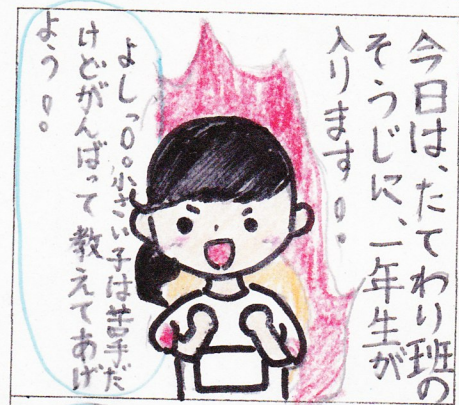 今日は、たてわり班の
そうじに、一年生が
入ります!!
よしっ!!小さい子は苦手だ
けどがんばって教えてあげ
よう!!